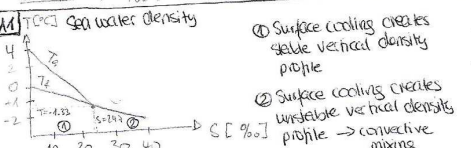 A1 T[°C] Sea water density
4
2
0
-1
-2
T=-1.33
S=24.7
①
②
10 20 30 40
S[‰]
① Surface cooling creates
stable vertical density
profile
② Surface cooling creates
unstable vertical density
profile → convective
mixing